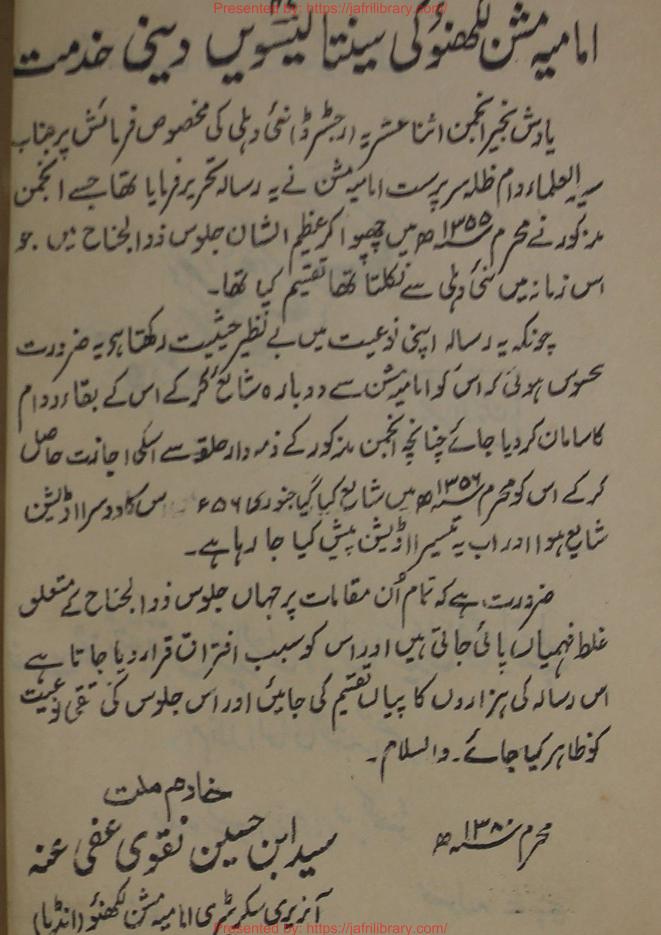 Presented by: https://jafrilibrary.com/
امامیہ مشن لکھنؤ کی سینتالیسویں دینی خدمت
یادش بخیر انجمن اثنا عشریہ (رجسٹرڈ) نئی دہلی کی مخصوص فرمائش پر جناب
سید العلماء دام ظلہ سرپرست امامیہ مشن نے یہ رسالہ تحریر فرمایا تھا جسے انجمن
مذکور نے محرم ۱۳۵۵ھ میں چھپوا کر عظیم الشان جلوس ذوالجناح میں جو
اس زمانہ میں نئی دہلی سے نکلتا تھا تقسیم کیا تھا۔
چونکہ یہ رسالہ اپنی نوعیت میں بے نظیر حیثیت رکھتا ہے یہ ضرورت
محسوس ہوئی کہ اس کو امامیہ مشن سے دوبارہ شایع کر کے اس کے بقاء و دوام
کا سامان کر دیا جائے چنانچہ انجمن مذکور کے ذمہ دار حلقہ سے اسکی اجازت حاصل
کر کے اس کو محرم ۱۳۵۶ھ میں شایع کیا گیا جنوری ۵۶ء اس کا دوسرا اڈیشن
شایع ہوا اور اب یہ تیسرا اڈیشن پیش کیا جا رہا ہے۔
ضرورت ہے کہ تمام اُن مقامات پر جہاں جلوس ذوالجناح کے متعلق
غلط فہمیاں پائی جاتی ہیں اور اس کو سبب افتراق قرار دیا جاتا ہے
اس رسالہ کی ہزاروں کاپیاں تقسیم کی جائیں اور اس جلوس کی نوعیت
کو ظاہر کیا جائے۔ والسلام۔
خادم ملت
سید ابن حسین نقوی عفی عنہ
محرم ۱۳۸۰ھ
آنریری سکریٹری امامیہ مشن لکھنؤ (انڈیا)
Presented by: https://jafrilibrary.com/